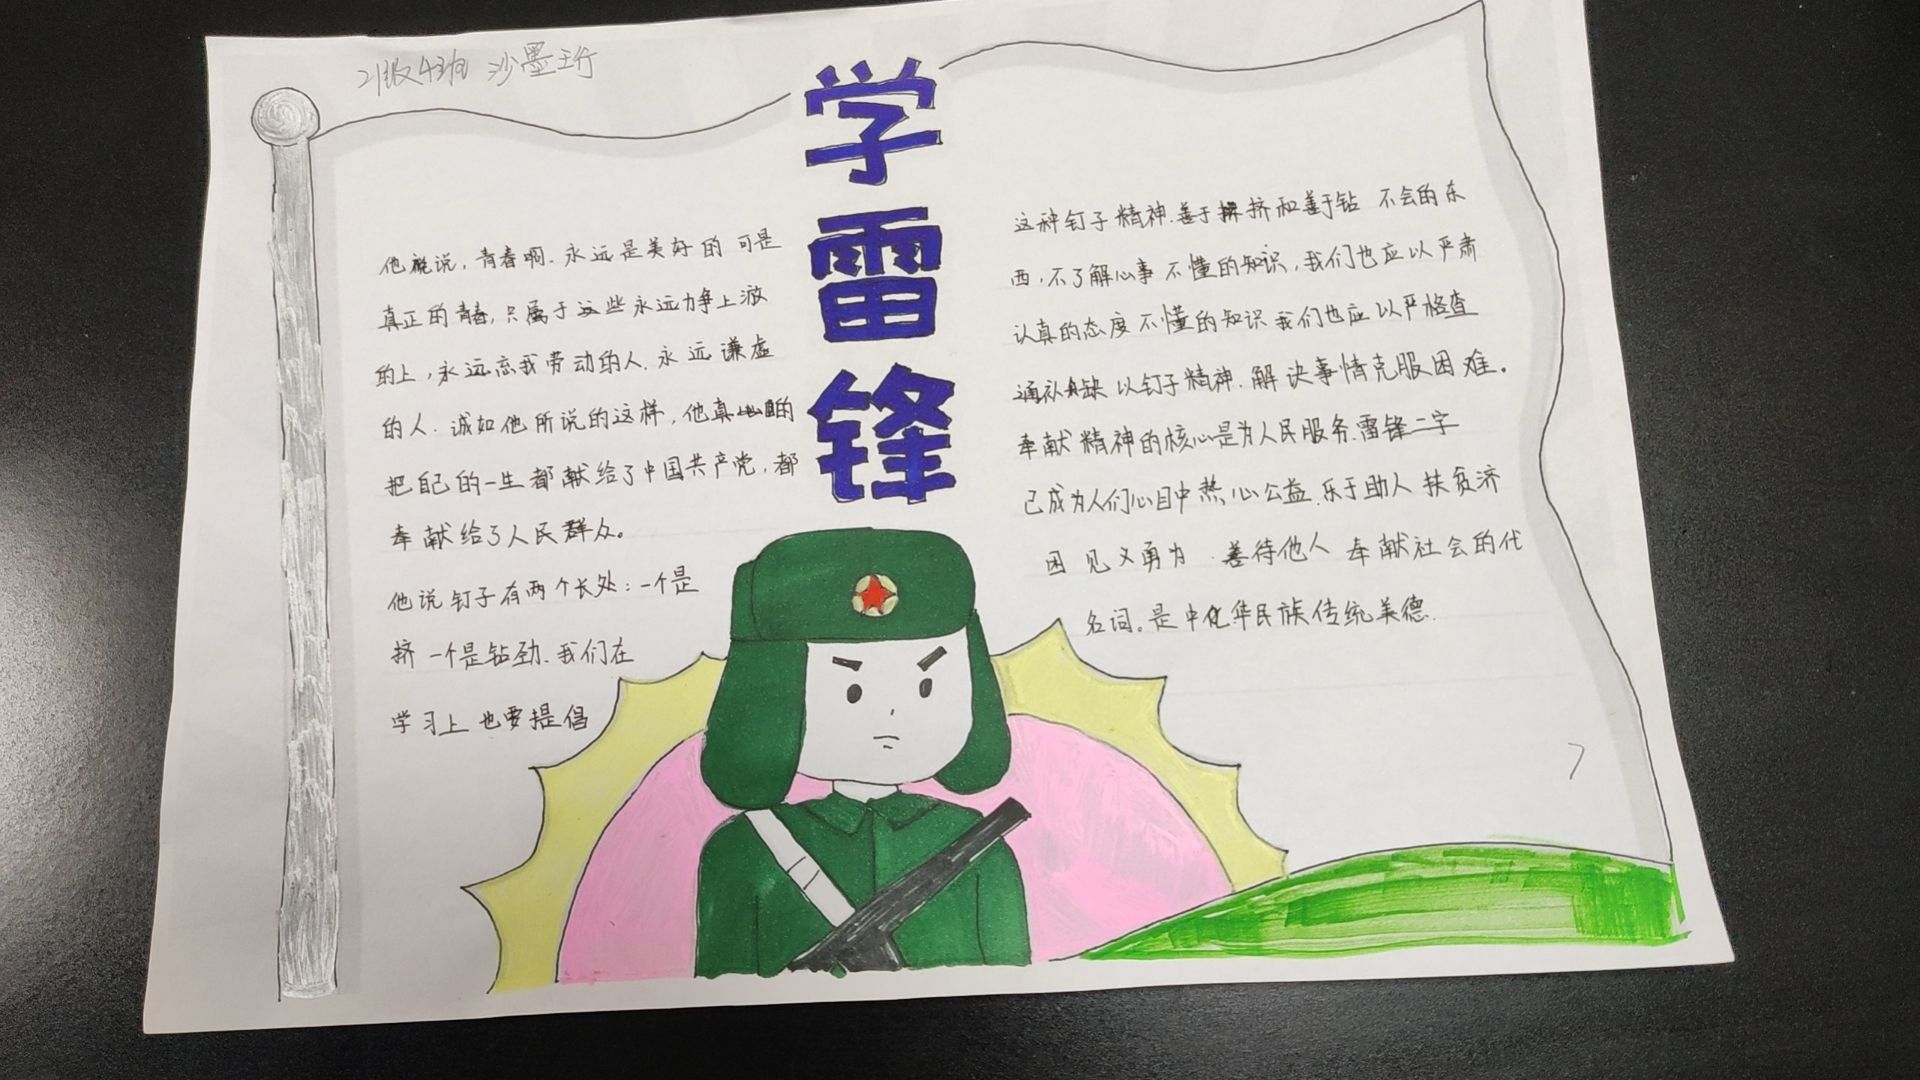 21级4班 沙墨珩
学雷锋
他说,青春啊.永远是美好的 可是
真正的青春,只属于这些永远力争上游
的上,永远忘我劳动的人.永远谦虚
的人.诚如他所说的这样,他真的
把自己的一生都献给了中国共产党,都
奉献给了人民群众。
他说钉子有两个长处:一个是
挤 一个是钻劲.我们在
学习上 也要提倡
这种钉子精神.善于挤和善于钻 不会的东
西,不了解心事 不懂的知识,我们也应以严肃
认真的态度不懂的知识我们也应以严格查
以钉子精神.解决事情克服困难。
奉献精神的核心是为人民服务.雷锋二字
已成为人们心目中热心公益.乐于助人 扶贫济
困 见义勇为 .善待他人 奉献社会的代
名词。是中华民族传统美德.